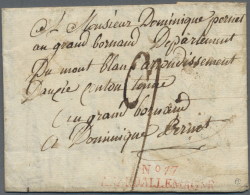 A Monsieur Dominique perriet
au grand bornand Departement
Du mont blanc arrondissement
canton
au grand bornand
A Dominique Perriet
No 17
ALLEMAGNE